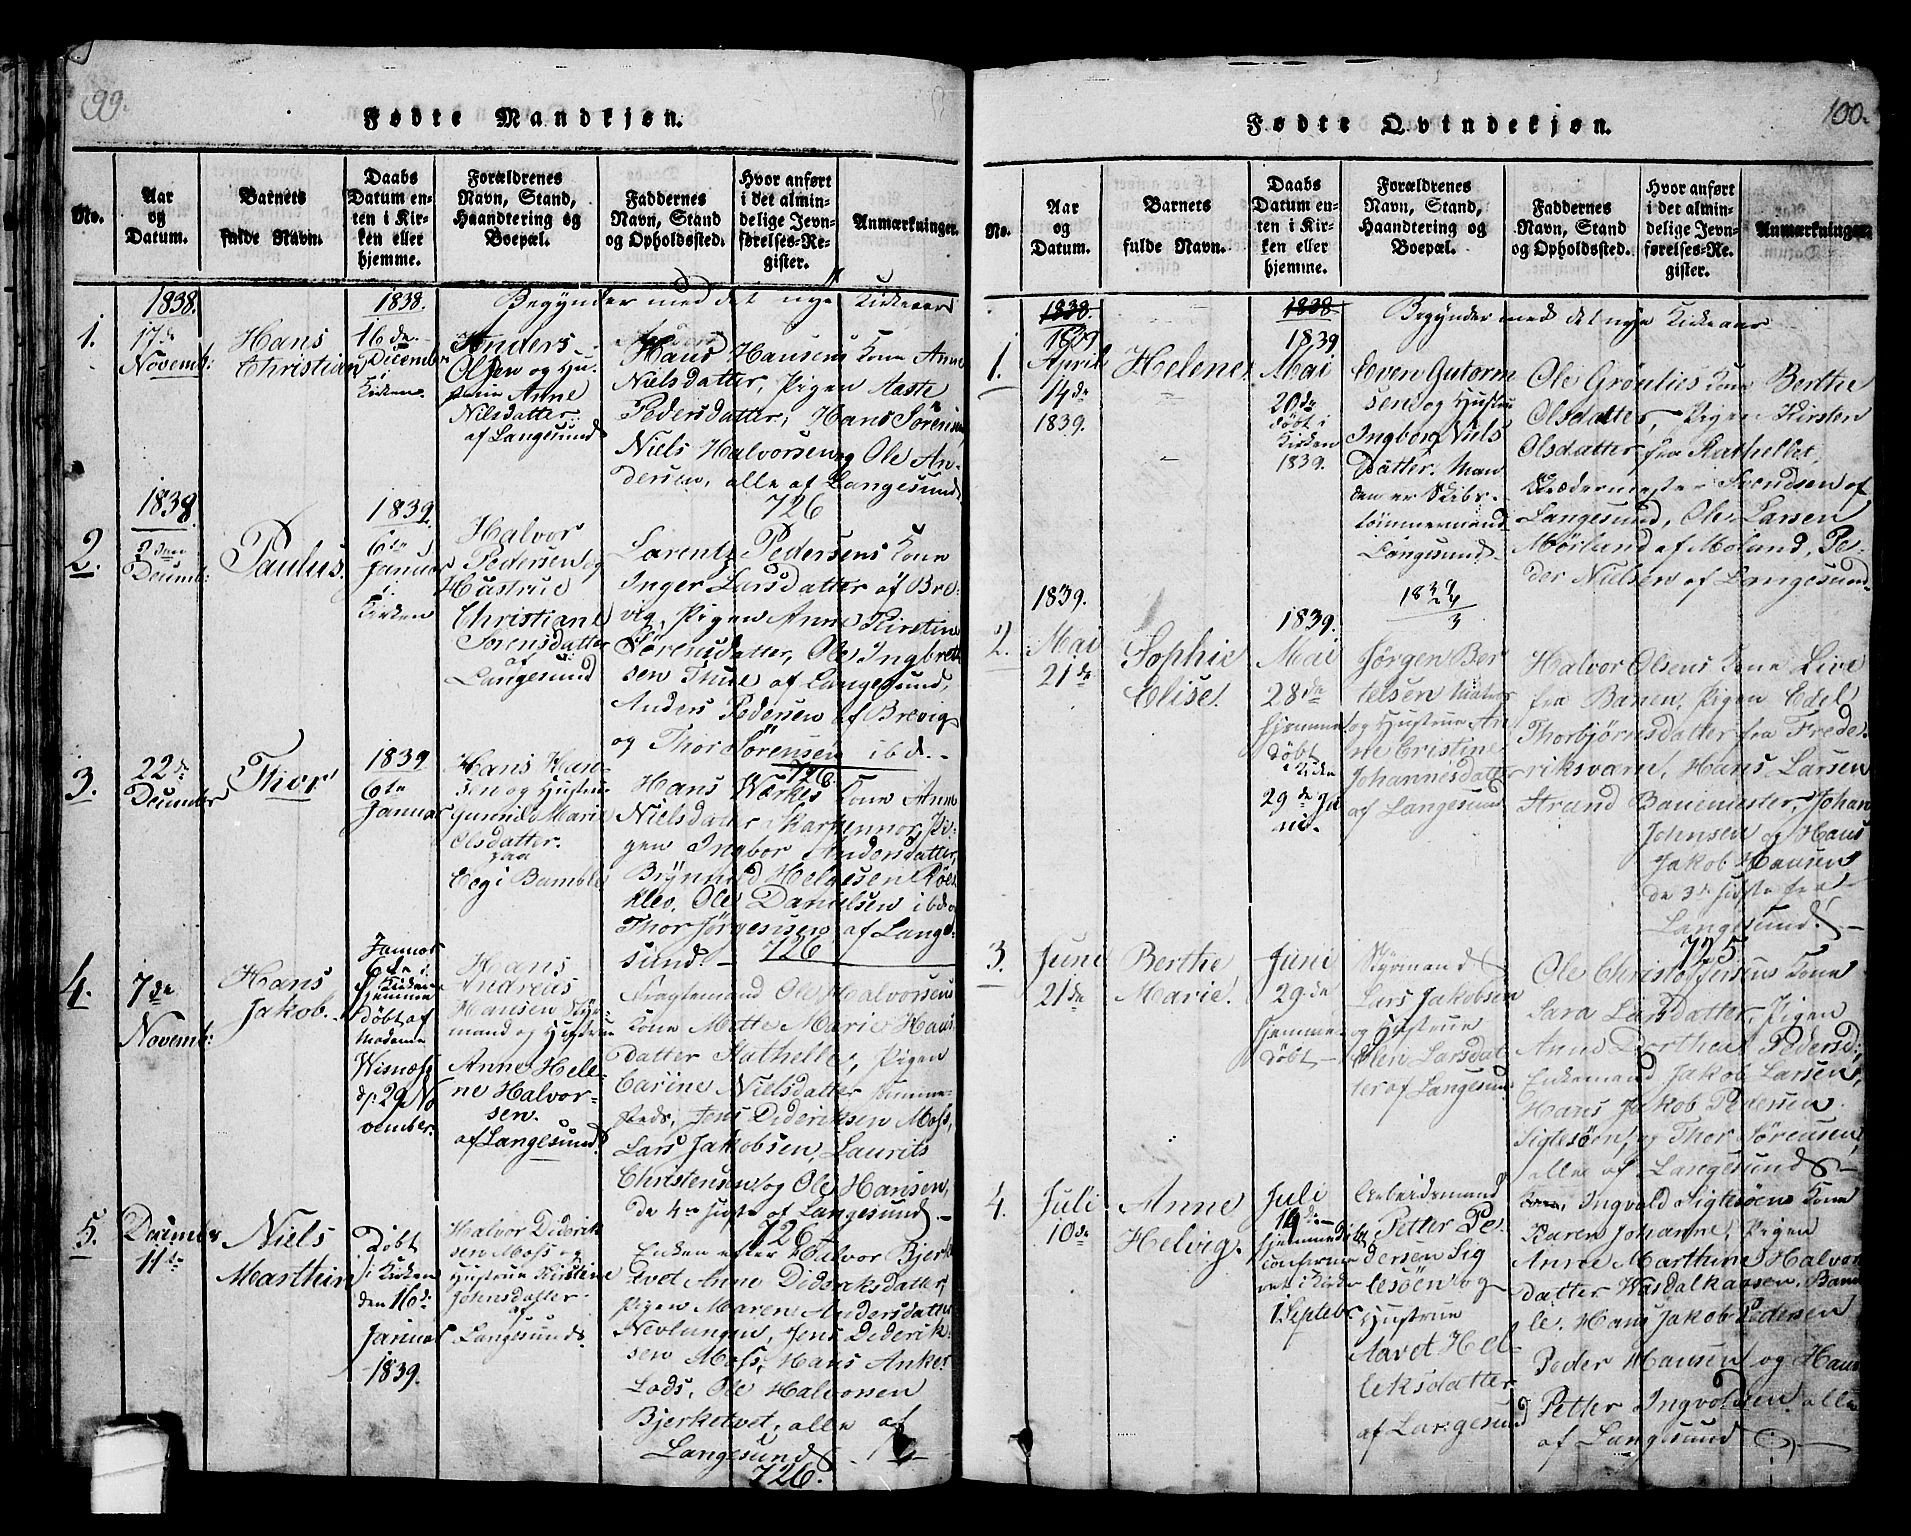 99.
Fødte Mandkjøn.
No.
Aar
og
Datum.
Barnets
fulde Navn.
Daabs
Datum en-
ten i Kir-
ken eller
hjemme.
Forældrenes
Navn, Stand,
Haandtering og
Boepæl.
Faddernes
Navn, Stand
og Opholdssted.
Hvor anført
i det almin-
delige Jevn-
førelses-Re-
gister.
Anmærkninger.
Begynder med det nye Kirkeaar
1838.
1.
17de
Novemb:
Hans
Christian
1838.
16de
December
i
Kirken
Anders
Olsen og Hu-
strue Anne
Nilsdatter
af Langesund
Hans Hansens Kone Anne
Nielsdatter, Pigen Aaste
Pedersdatter, Hans Sørensen
Niels Halvorsen og Ole An-
dersen, alle af Langesund
726
1838.
2.
2den
Decemb:
Paulus.
1839.
6te
Januar
i
Kirken
Halvor
Pedersen og
Hustrue
Christiane
Sorensdatter
af
Langesund
Lorentz Pedersens Kone
Inger Larsdatter af Bre-
vig, Pigen Anne Kirstine
Sørensdatter, Ole Ingbret-
sen Thue af Langesund,
Anders Pedersen af Brevig
og Thor Sørensen ibd.
726
3.
22de
December
Thor
1839
6te
Januar
Hans Han-
sen og Hustrue
Gunild Marie
Olsdatter
paa
Eeg i Bamble
Hans Wærkes Kone Anne
Nielsdatter, Pi-
gen Ingbor Andersdatter,
Brynild Helgesen
Klev, Ole Danielsen ibd og
Thor Jørgensen af Lange-
sund
726
4.
7de
Novemb:
Hans
Jakob.
Januar
6te i
Kirken
hjemme
døbt af
Madame
Wismess
d. 29 No
vember.
Hans
Andreas
Hansen Styr-
mand og Hustrue
Anne Hele-
ne Halvor-
sen.
af Langesund
Fragtemand Ole Halvorsens
Kone Mette Marie Hans-
datter Stathelle, Pigen
Carine Nielsdatter
Jens Dideriksen Moss,
Lars Jakobsen, Laurits
Christensen og Ole Hansen,
de 4re sidste af Langesund
726
5.
December
11te
Niels
Marthin
Døbt
i Kirken
den 16de
Januar
1839.
Halvor Diderik
sen Moss og
Hustrue Kirstine
Johnsdatter
af
Langesund.
Enken efter Halvor Bjerke
tvet Anne Dideriksdatter,
Pigen Maren Andersdatter
Nevlungen, Jens Diderik-
sen Moss, Hans Anker
Lods, Ole Halvorsen
Bjerketvet, alle af
Langesund
726.
100.
Fødte Qvindekjøn.
No.
Aar
og
Datum.
Barnets
fulde Navn.
Daabs
Datum en-
ten i Kir-
ken eller
hjemme.
Forældrenes
Navn, Stand,
Haandtering og
Boepæl.
Faddernes
Navn, Stand
og Opholdssted.
Hvor anført
i det almin-
delige Jevn-
førelses-Re-
gister.
Anmærkninger.
Begynder med det nye Kirkeaar
1838.
1839
1.
April
14de
1839.
Helene.
1838.
1839
Mai
20de
døbt i
Kirken
1839.
Even Gutorm
sen og Hustrue
Ingborg Niels
datter. Man
den er Skibs-
tømmermand
Langesund.
Ole Grønlies Kone Berthe
Olsdatter, Pigen Kirsten
Olsdatter fra Stathelle,
Skrædermester Svendsen af
Langesund, Ole Larsen
Mørland af Moland, Pe-
der Nielsen af Langesund.
1839.
2.
Mai
21de
Sophie
Elise.
1839.
Mai
28de
hjemme
døbt
i Kirken
29de
Jørgen Ber
telsen Matros
og Hustrue An
ne Cristine
Johannesdatter
af Langesund
Halvor Olsens Kone Live
fra Banen, Pigen Edel
Thorbjørnsdatter fra Frede-
riksværn, Hans Larsen
Strand Baneméster, Johan
Johnsen og Hans
Jakob Hansen
de 3de sidste fra
Langesund
725.
3.
Juni
21de
Berthe
Marie.
Juni
29de
hjemme
døbt
Styrmand
Lars Jakobsen
og Hustrue
Elen Larsdat
ter af Langesund
Ole Christoffersens Kone
Sara Larsdatter, Pigen
Anne Dorthea Pedersd:
Enkemand Jakob Larsen,
Hans Jakob Pedersen
Sigtesøen, og Thor Sørensen,
alle af Langesund
4.
Juli
10de
Anne
Helvig.
Juli
hjemme døbt
confirme
ret i Kirke
1 Septebr.
Arbeidsmand
Petter Pe-
dersen Sig
tesöen og
Hustrue
Aavet Hel-
leksdatter
af Langesund
Ingvald Sigtesøens Kone
Karen Johanne, Pigen
Anne Marthine Halvor
datter Wasdalkaasen, Bam
le, Hans Jakob Pedersen
Peder Hansen og Hans
Petter Ingvoldsen alle
af Langesund